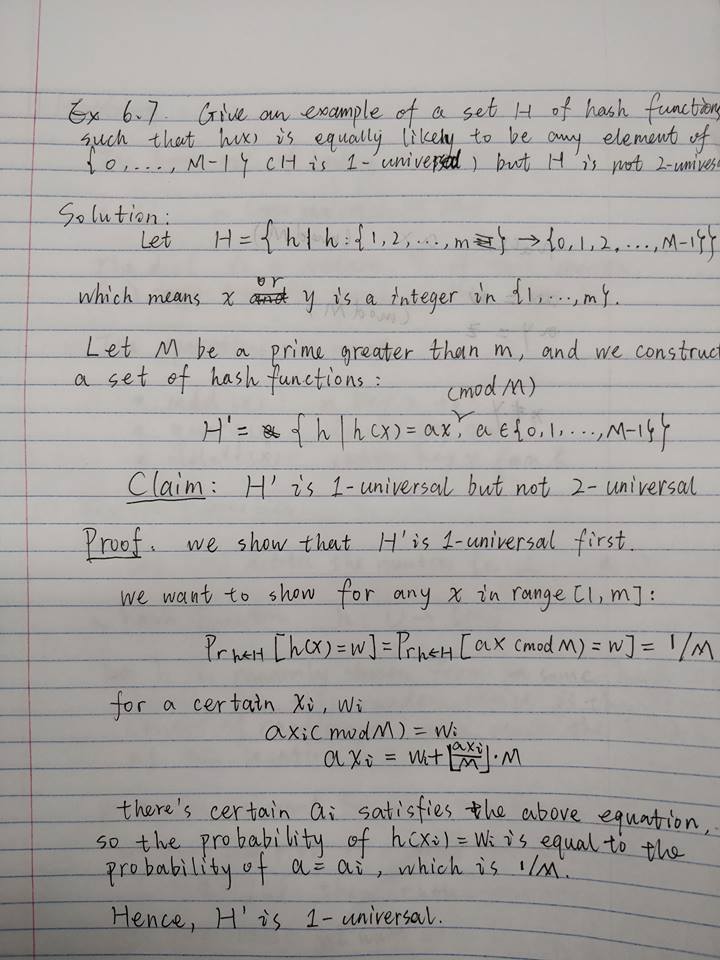 Ex 6.7. Give an example of a set H of hash functions
such that h(x) is equally likely to be any element of
{0,..., M-1} (H is 1-universal) but H is not 2-univers
Solution:
Let H = {h | h : {1,2,...,m} → {0,1,2,...,M-1}}
which means x or y is a integer in {1,...,m}.
Let M be a prime greater than m, and we construct
a set of hash functions:
H' = {h | h(x) = ax (mod M), a ∈ {0,1,...,M-1}}
Claim: H' is 1-universal but not 2-universal
Proof. we show that H' is 1-universal first.
we want to show for any x in range [1,m]:
Pr h←H [h(x)=w] = Pr h←H [ax (mod M) = w] = 1/M
for a certain xi, wi
axi (mod M) = wi
axi = wi + ⌊axi/M⌋·M
there's certain ai satisfies the above equation,
so the probability of h(xi) = wi is equal to the
probability of a = ai, which is 1/M.
Hence, H' is 1-universal.